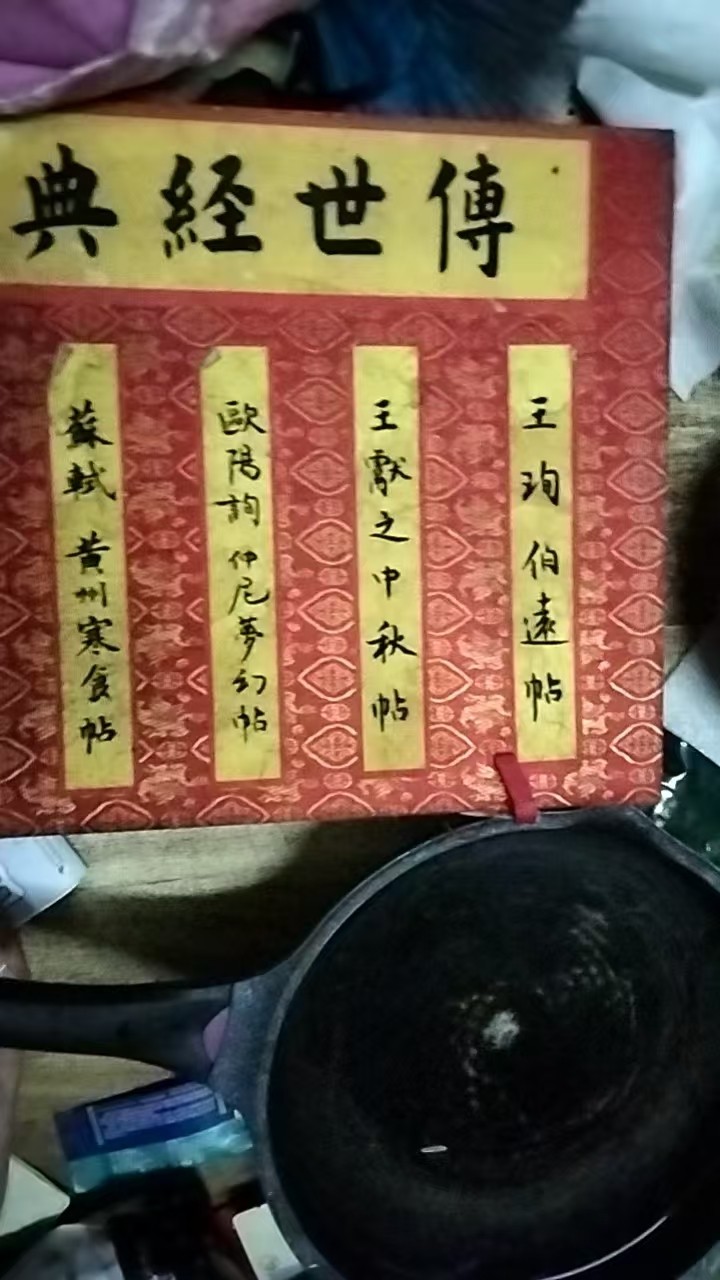 傳世経典
王珣伯遠帖
王獻之中秋帖
歐陽詢 仲尼夢幻帖
蘇軾 黃州寒食帖